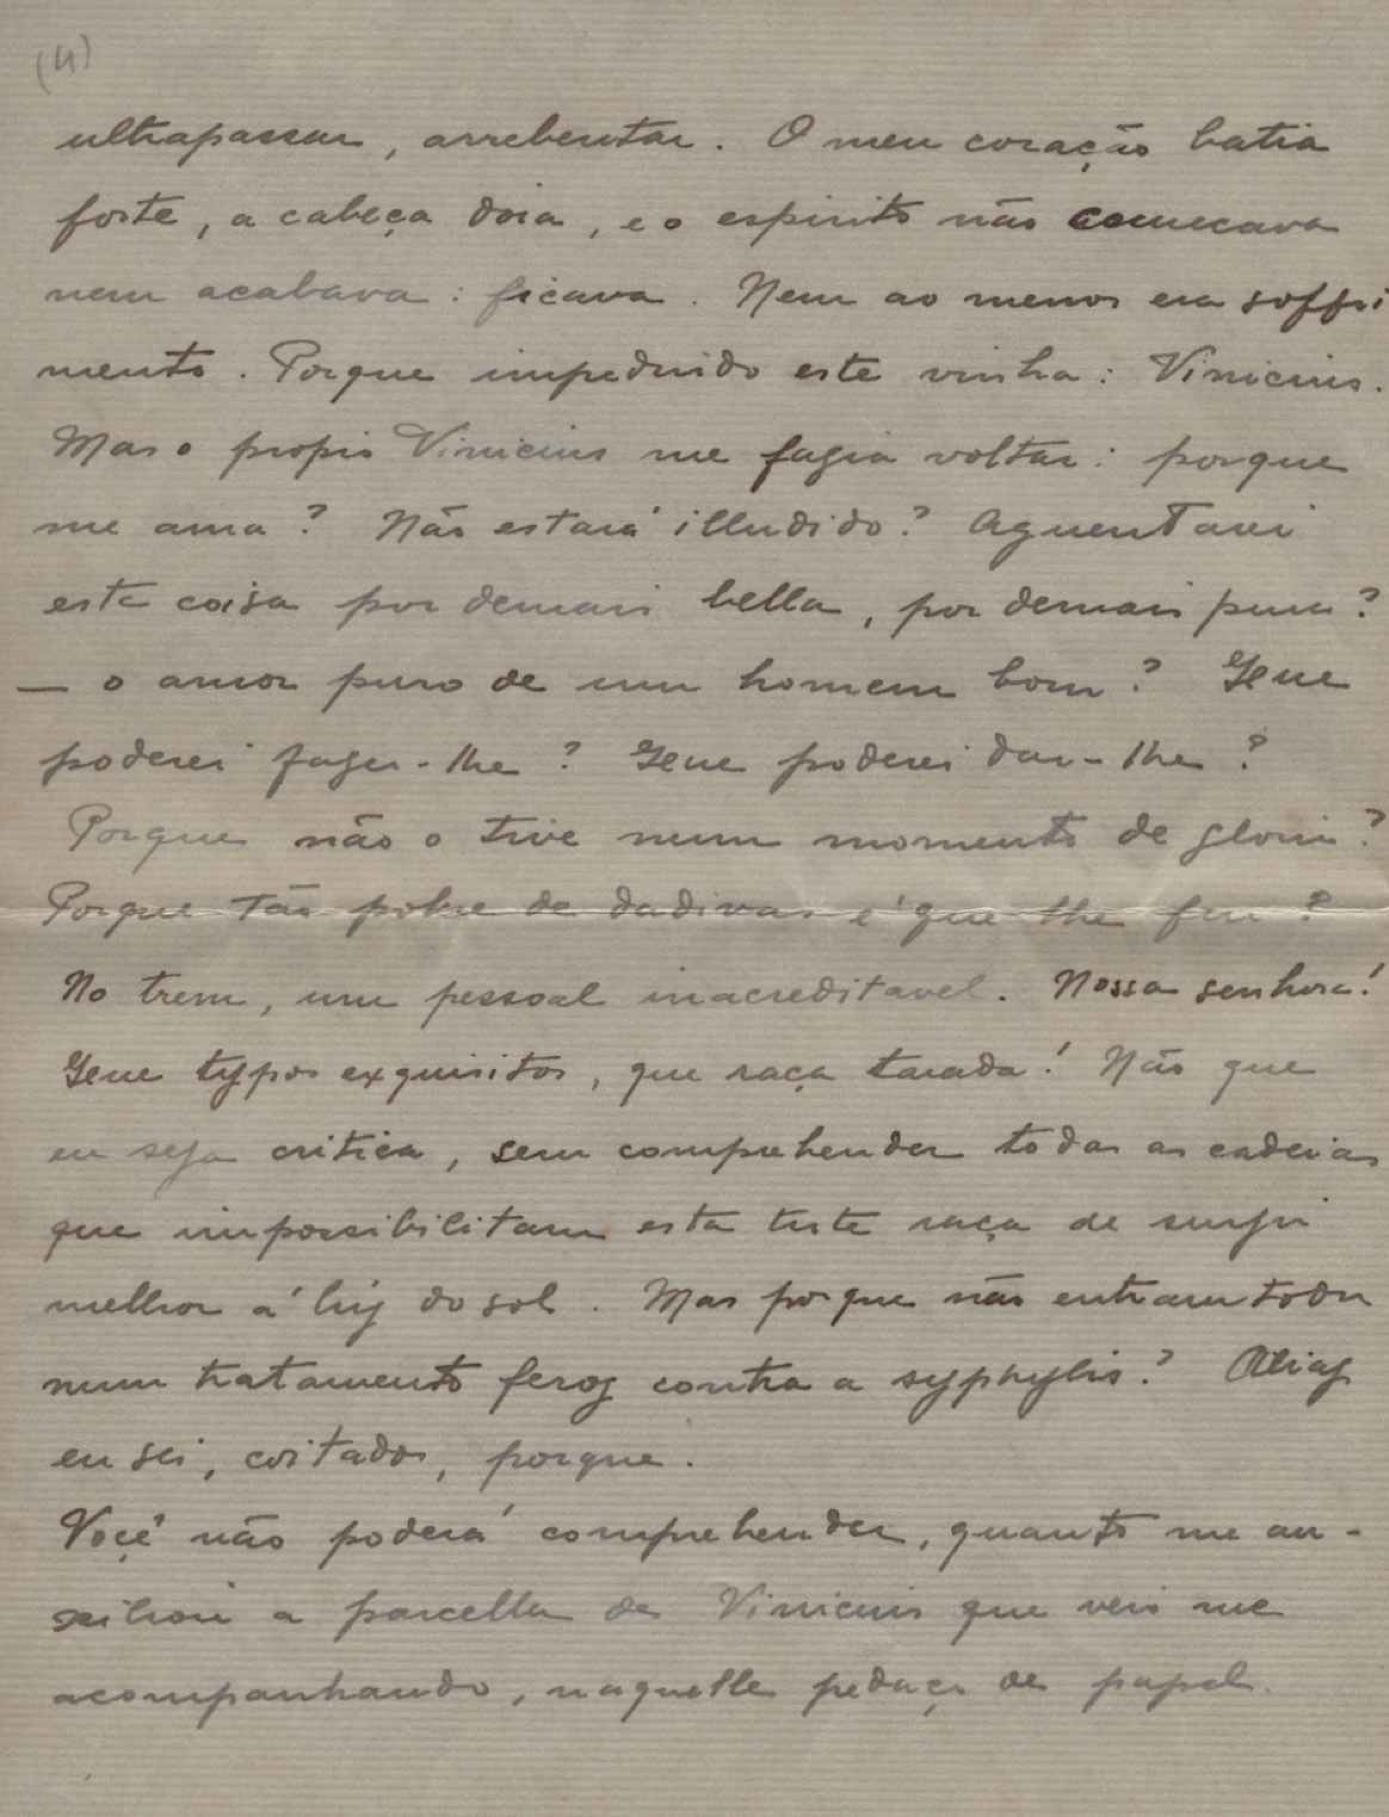 (4)
ultrapassar, arrebentar. O meu coração batia
forte, a cabeça doia, e o espirito não começava
nem acabava: ficava. Nem ao menos era soffri
mento. Porque impedindo este vinha: Vinicius.
Mas o propio Vinicius me fazia voltar: porque
me ama? Não estará illudido? Aguentarei
esta coisa por demais bella, por demais pura?
— o amor puro de um homem bom? Que
poderei fazer-lhe? Que poderei dar-lhe?
Porque não o tive num momento de gloria?
Porque tão pobre de dadivas é que lhe fui?
No trem, um pessoal inacreditavel. Nossa senhora!
Que typos exquisitos, que raça tarada! Não que
eu seja critica, sem comprehender todas as cadeias
que impossibilitam esta triste raça de surgir
melhor á luz do sol. Mas porque não entram todos
num tratamento feroz contra a syphylis? Aliaz
eu sei, coitados, porque.
Você não poderá comprehender, quanto me au-
xiliou a parcella de Vinicius que veio me
acompanhando, naquelle pedaço de papel.